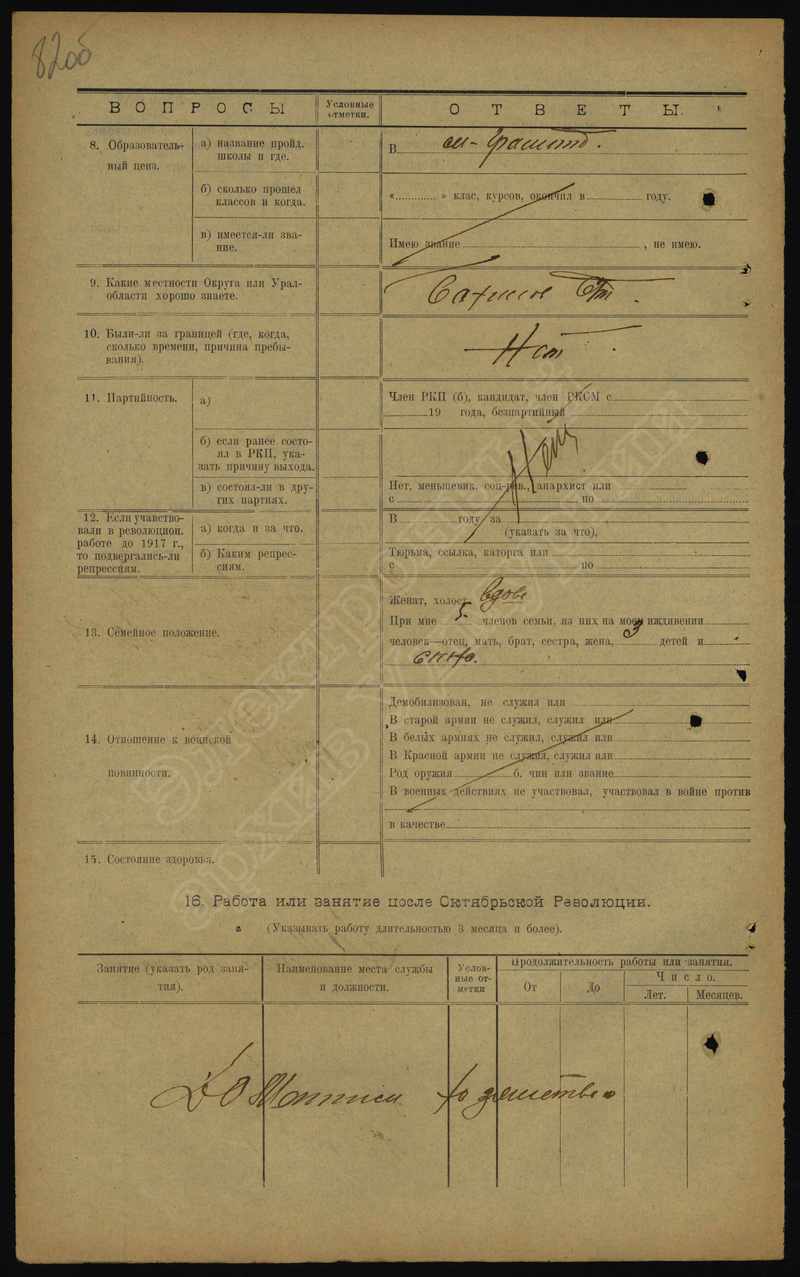 82об
ВОПРОСЫ
Условные отметки.
ОТВЕТЫ.
8. Образователь-
ный ценз.
а) название пройд.
школы и где.
В
б) сколько прошел
классов и когда.
«.............» клас, курсов, окончил в ............ году.
в) имеется-ли зва-
ние.
Имею звание ............, не имею.
9. Какие местности Округа или Урал-
области хорошо знаете.
10. Были-ли за границей (где, когда,
сколько времени, причина пребы-
вания).
Нет
11. Партийность.
а)
Член РКП (б), кандидат, член РКСМ с
19 года, безпартийный
б) если ранее состо-
ял в РКП, ука-
зать причину выхода.
Нет
в) состоял-ли в дру-
гих партиях.
Нет, меньшевик, соц-рев., анархист или
с по
12. Если учавство-
вали в революцион.
работе до 1917 г.,
то подвергались-ли
репрессиям.
а) когда и за что.
В году за
(указать за что).
б) Каким репрес-
сиям.
Тюрьма, ссылка, каторга или
с по
13. Семейное положение.
Женат, холост, Вдова
При мне 5 членов семьи, из них на моем иждивении
человек—отец, мать, брат, сестра, жена, 3 детей и
14. Отношение к воинской
повинности.
Демобилизован, не служил или
В старой армии не служил, служил или
В белых армиях не служил, служил или
В Красной армии не служил, служил или
Род оружия б. чин или звание
В военных действиях не участвовал, участвовал в войне против
в качестве
15. Состояние здоровья.
16. Работа или занятие после Октябрьской Революции.
(Указывать работу длительностью 3 месяца и более).
Занятие (указать род заня-
тия).
Наименование места службы
и должности.
Услов-
ные от-
метки
Продолжительность работы или занятия.
От
До
Число.
Лет.
Месяцев.